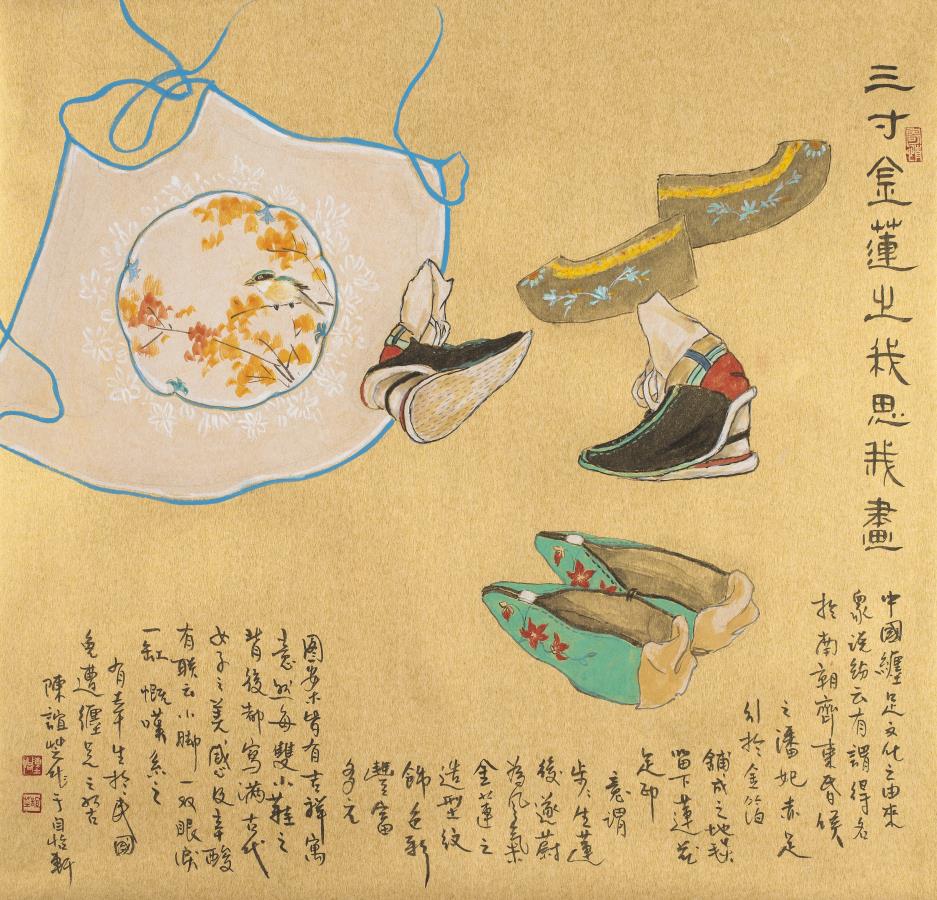 三寸金蓮之我思我畫
中國纏足文化之由來
眾說紛云有謂得名
於南朝齊東昏侯
之潘妃赤足
行於金箔
鋪成之地
留下蓮花
足印
意謂
步步生蓮
後遂蔚
為風氣
金蓮之
造型紋
飾色彩
豐富
多元
圖案皆有吉祥寓
意然每雙小鞋之
背後都寫滿古代
女子之美感及辛酸
有聯云小腳一双眼淚
一缸慨嘆系之
有幸生於民國
免遭纏足之苦
陳誼 作于自怡軒